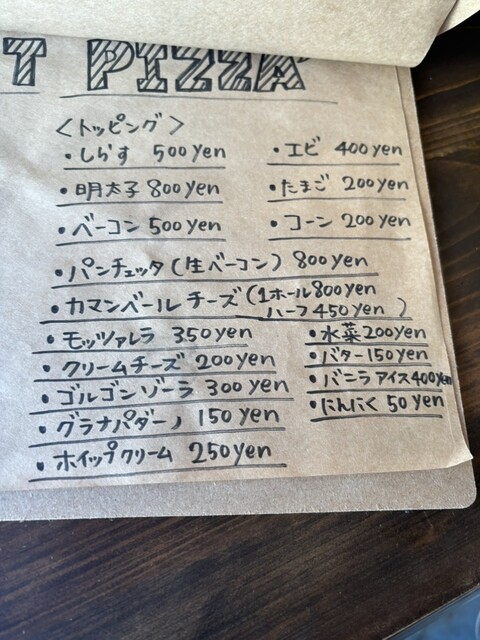 T PIZZA
＜トッピング＞
・しらす 500yen ・エビ 400yen
・明太子 800yen ・たまご 200yen
・ベーコン 500yen ・コーン 200yen
・パンチェッタ(生ベーコン) 800yen
・カマンベールチーズ(1ホール800yen
ハーフ450yen)
・モッツァレラ 350yen ・水菜200yen
・クリームチーズ 200yen ・バター150yen
・ゴルゴンゾーラ 300yen ・バニラアイス400yen
・グラナパダーノ 150yen ・にんにく 50yen
・ホイップクリーム 250yen